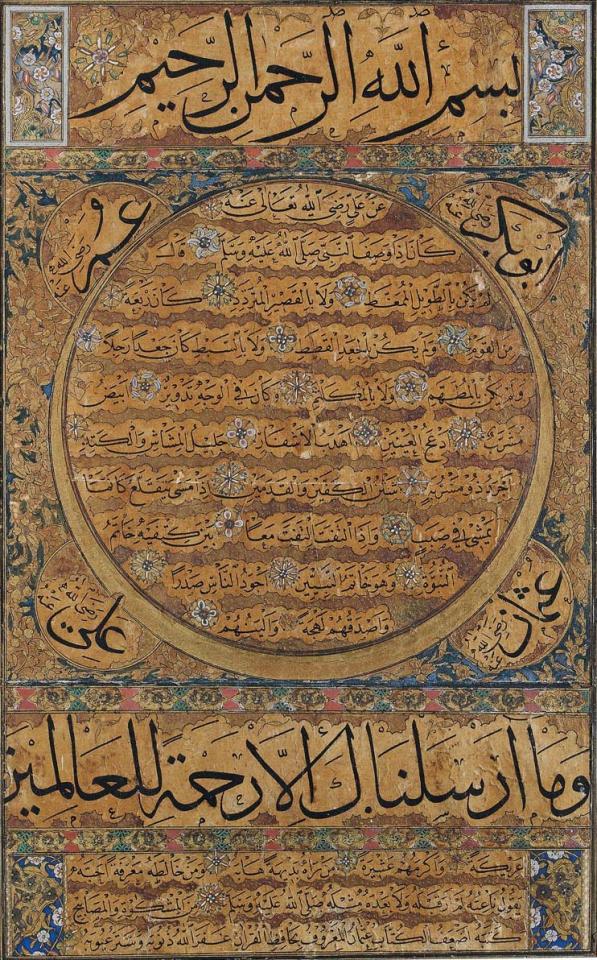 بسم الله الرحمن الرحيم
ابو بكر رضي الله عنه
عمر رضي الله عنه
عن علي رضي الله تعالى عنه
كان اذا وصف النبي صلى الله عليه وسلم قال
لم يكن بالطويل الممغط ولا بالقصير المتردد كان ربعة
من القوم ولم يكن بالجعد القطط ولا بالسبط كان جعدا رجلا
ولم يكن بالمطهم ولا بالمكلثم وكان في الوجه تدوير ابيض
مشرب ادعج العينين اهدب الاشفار جليل المشاش والكتد
اجرد ذو مسربة شثن الكفين والقدمين اذا مشى يتقلع كانما
يمشي في صبب واذا التفت التفت معا بين كتفيه خاتم
النبوة وهو خاتم النبيين اجود الناس صدرا
واصدقهم لهجة والينهم
عثمان رضي الله عنه
علي رضي الله عنه
وما ارسلناك الا رحمة للعالمين
عريكة واكرمهم عشيرة من رآه بديهة هابه ومن خالطه معرفة احبه
يقول ناعته لم ار قبله ولا بعده مثله صلى الله عليه وسلم من المشكوة والمصابيح
كتبه اضعف الكتاب عثمان المعروف بحافظ القران غفر الله ذنوبه وستر عيوبه